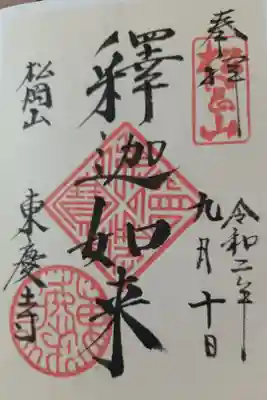 奉拝
松岡山
令和二年
九月十日
釋迦如来
松岡山
東慶寺